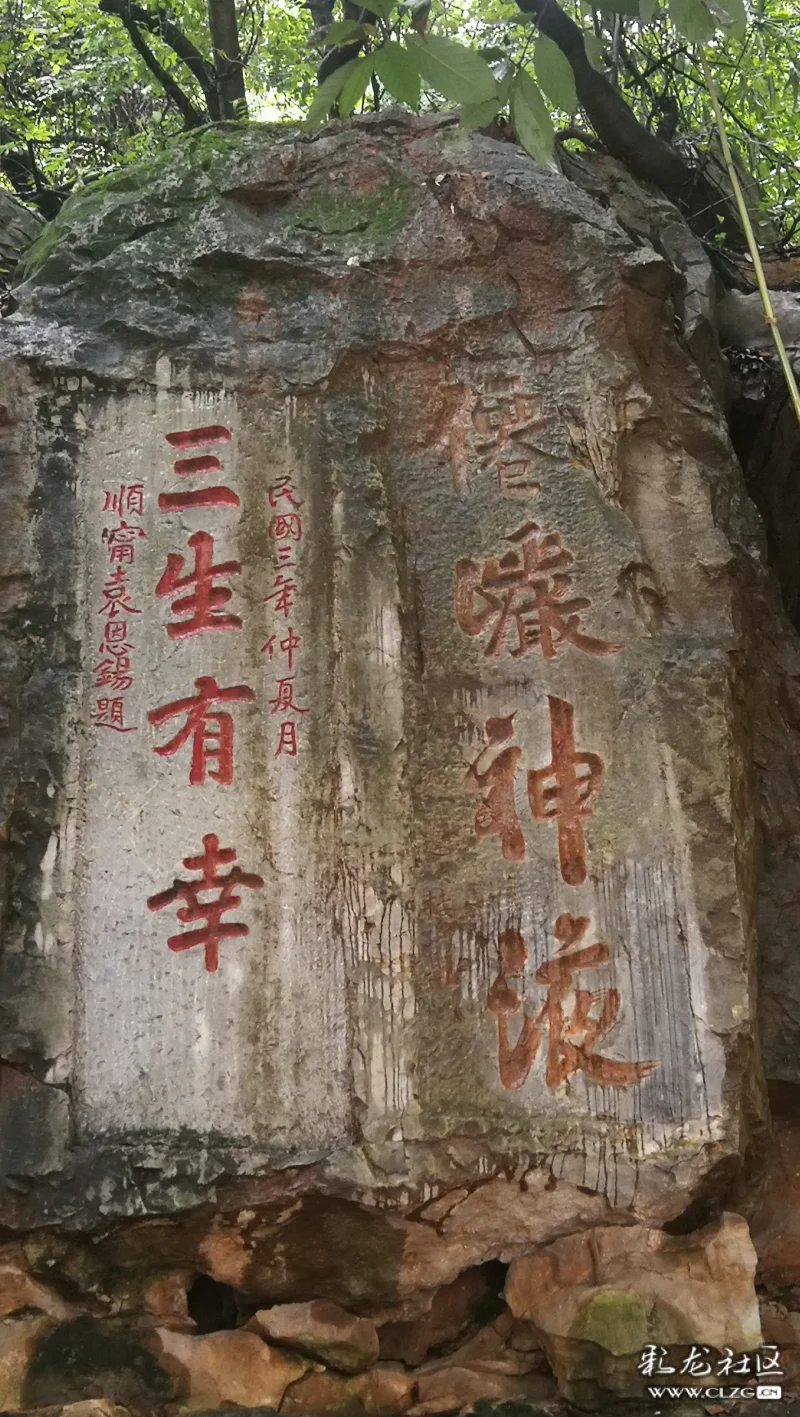 僊巖神液
民國三年仲夏月
三生有幸
順甯袁恩錫題
彩龙社区
www.CLZG.CN